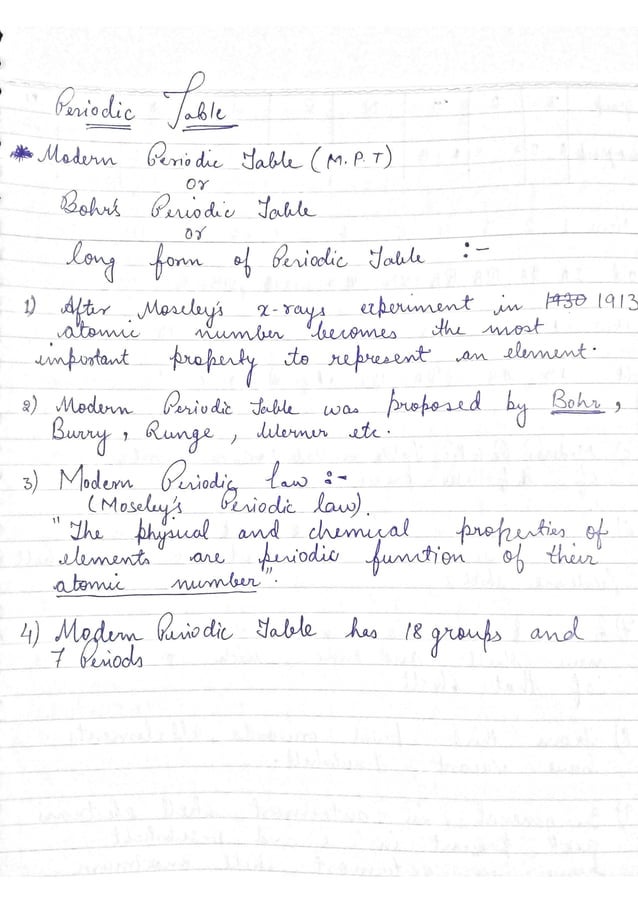 Periodic Table
* Modern Periodic Table (M.P.T)
or
Bohr's Periodic Table
or
long form of Periodic Table :-
1) After Moseley's x-rays experiment in 1930 1913
atomic number becomes the most
important property to represent an element.
2) Modern Periodic Table was proposed by Bohr,
Burry, Runge, Werner etc.
3) Modern Periodic law :-
(Moseley's Periodic law).
"The physical and chemical properties of
elements are periodic function of their
atomic number".
4) Modern Periodic Table has 18 groups and
7 Periods